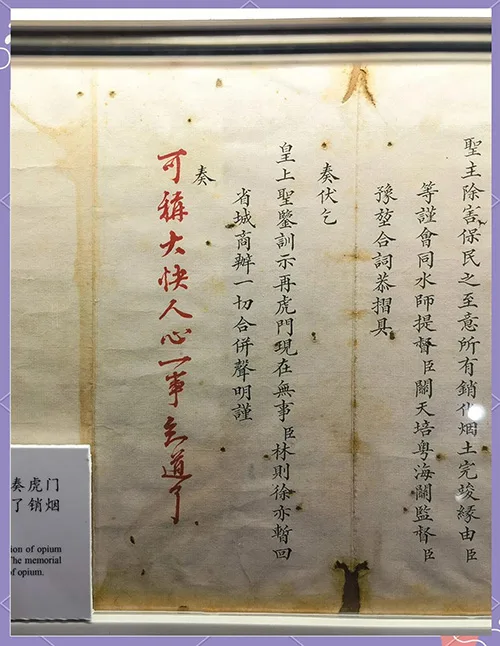 聖主除害保民之至意所有銷化烟土完竣緣由臣
等謹會同水師提督臣關天培粵海關監督臣
豫堃合詞恭摺具
奏伏乞
皇上聖鑒訓示再虎門現在無事臣林則徐亦暫回
省城商辦一切合併聲明謹
奏
可稱大快人心一事知道了
奏虎门
了销烟
ion of opium
The memorial
of opium.